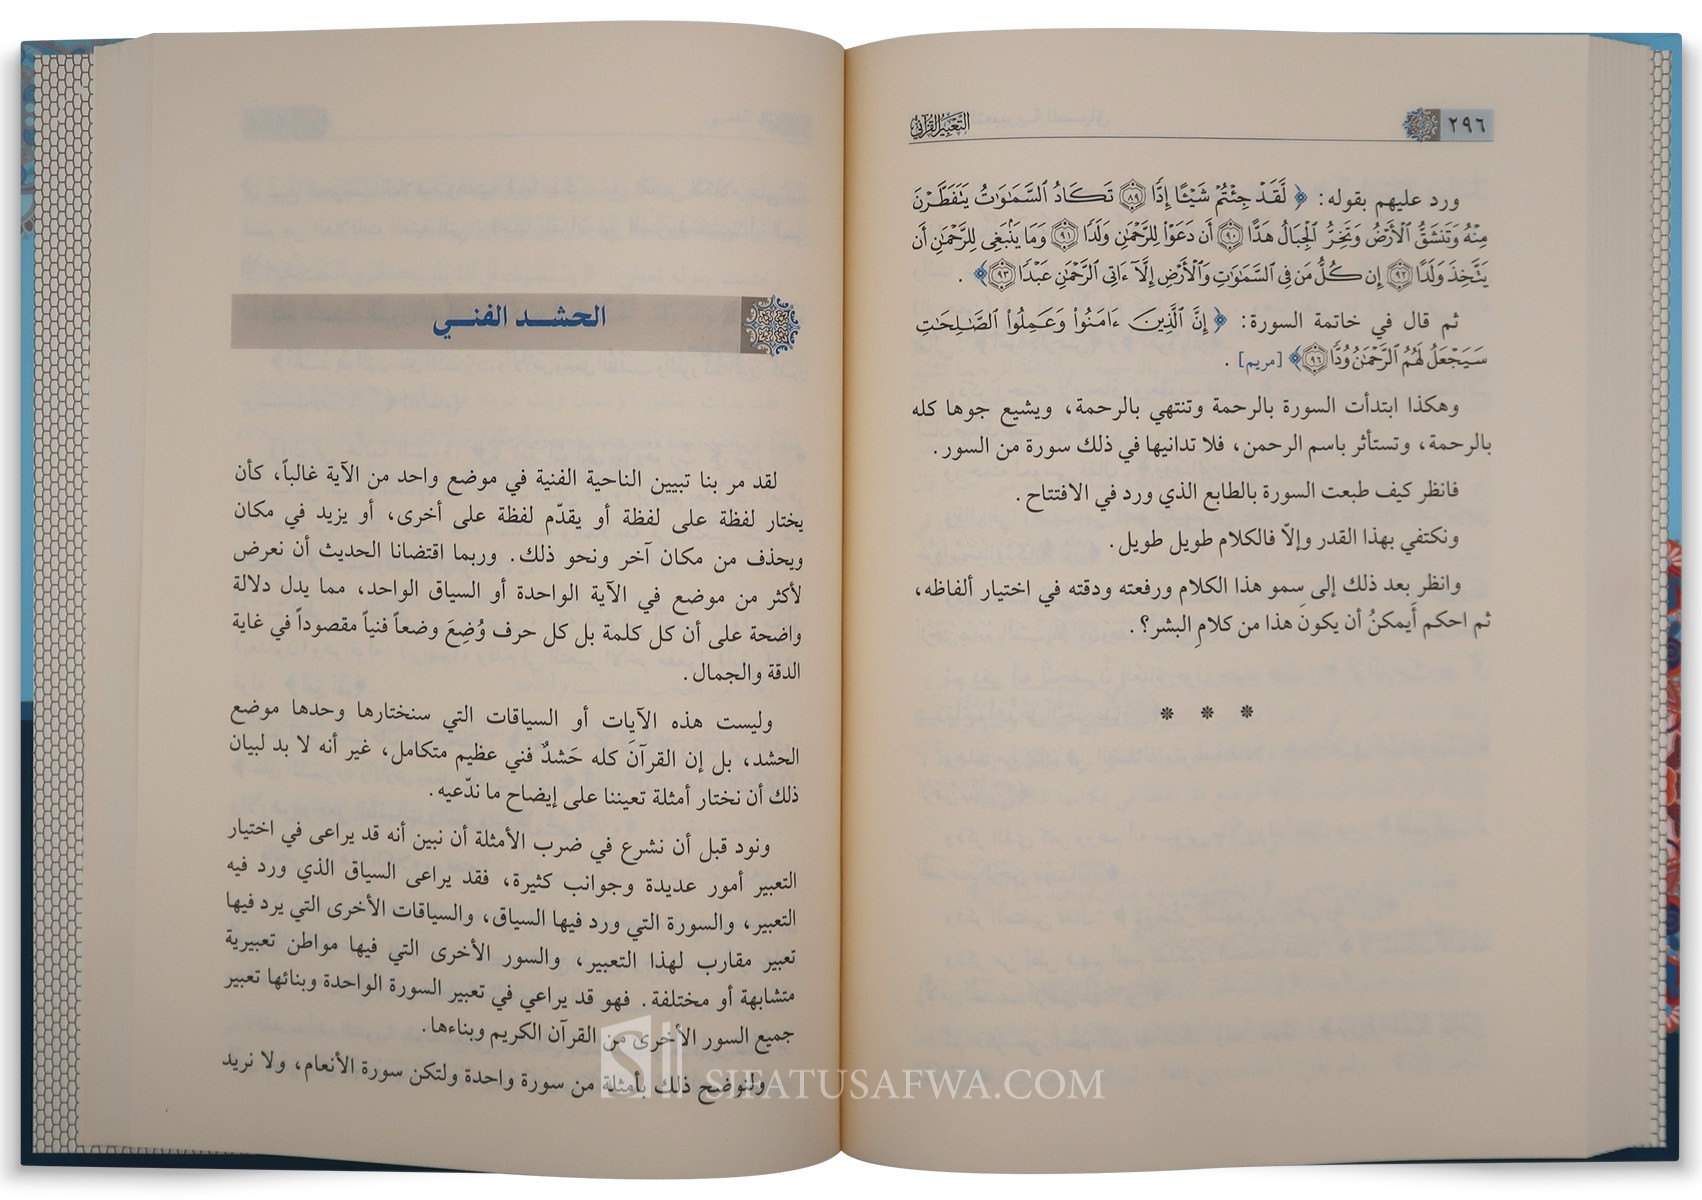 ٢٩٦
التعبير القرآني
ورد عليهم بقوله: ﴿ لَّقَدْ جِئْتُمْ شَيْـًٔا إِدًّا ٨٩ تَكَادُ ٱلسَّمَٰوَٰتُ يَتَفَطَّرْنَ
مِنْهُ وَتَنشَقُّ ٱلْأَرْضُ وَتَخِرُّ ٱلْجِبَالُ هَدًّا ٩٠ أَن دَعَوْا۟ لِلرَّحْمَٰنِ وَلَدًا ٩١ وَمَا يَنۢبَغِى لِلرَّحْمَٰنِ أَن
يَتَّخِذَ وَلَدًا ٩٢ إِن كُلُّ مَن فِى ٱلسَّمَٰوَٰتِ وَٱلْأَرْضِ إِلَّآ ءَاتِى ٱلرَّحْمَٰنِ عَبْدًا ٩٣﴾ .
ثم قال في خاتمة السورة: ﴿ إِنَّ ٱلَّذِينَ ءَامَنُوا۟ وَعَمِلُوا۟ ٱلصَّٰلِحَٰتِ
سَيَجْعَلُ لَهُمُ ٱلرَّحْمَٰنُ وُدًّا ٩٦﴾ [مريم] .
وهكذا ابتدأت السورة بالرحمة وتنتهي بالرحمة، ويشيع جوها كله
بالرحمة، وتستأثر باسم الرحمن، فلا تدانيها في ذلك سورة من السور.
فانظر كيف طبعت السورة بالطابع الذي ورد في الافتتاح.
ونكتفي بهذا القدر وإلاّ فالكلام طويل طويل.
وانظر بعد ذلك إلى سمو هذا الكلام ورفعته ودقته في اختيار ألفاظه،
ثم احكم أَيمكنُ أن يكونَ هذا من كلامِ البشر؟.
* * *
الحشد الفني
لقد مر بنا تبيين الناحية الفنية في موضع واحد من الآية غالباً، كأن
يختار لفظة على لفظة أو يقدّم لفظة على أخرى، أو يزيد في مكان
ويحذف من مكان آخر ونحو ذلك. وربما اقتضانا الحديث أن نعرض
لأكثر من موضع في الآية الواحدة أو السياق الواحد، مما يدل دلالة
واضحة على أن كل كلمة بل كل حرف وُضِعَ وضعاً فنياً مقصوداً في غاية
الدقة والجمال.
وليست هذه الآيات أو السياقات التي سنختارها وحدها موضع
الحشد، بل إن القرآنَ كله حَشدٌ فني عظيم متكامل، غير أنه لا بد لبيان
ذلك أن نختار أمثلة تعيننا على إيضاح ما ندّعيه.
ونود قبل أن نشرع في ضرب الأمثلة أن نبين أنه قد يراعى في اختيار
التعبير أمور عديدة وجوانب كثيرة، فقد يراعى السياق الذي ورد فيه
التعبير، والسورة التي ورد فيها السياق، والسياقات الأخرى التي يرد فيها
تعبير مقارب لهذا التعبير، والسور الأخرى التي فيها مواطن تعبيرية
متشابهة أو مختلفة. فهو قد يراعي في تعبير السورة الواحدة وبنائها تعبير
جميع السور الأخرى من القرآن الكريم وبناءها.
ولنوضح ذلك بأمثلة من سورة واحدة ولتكن سورة الأنعام، ولا نريد
SIFATUSAFWA.COM